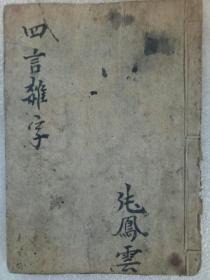 四言雜字
張鳳雲